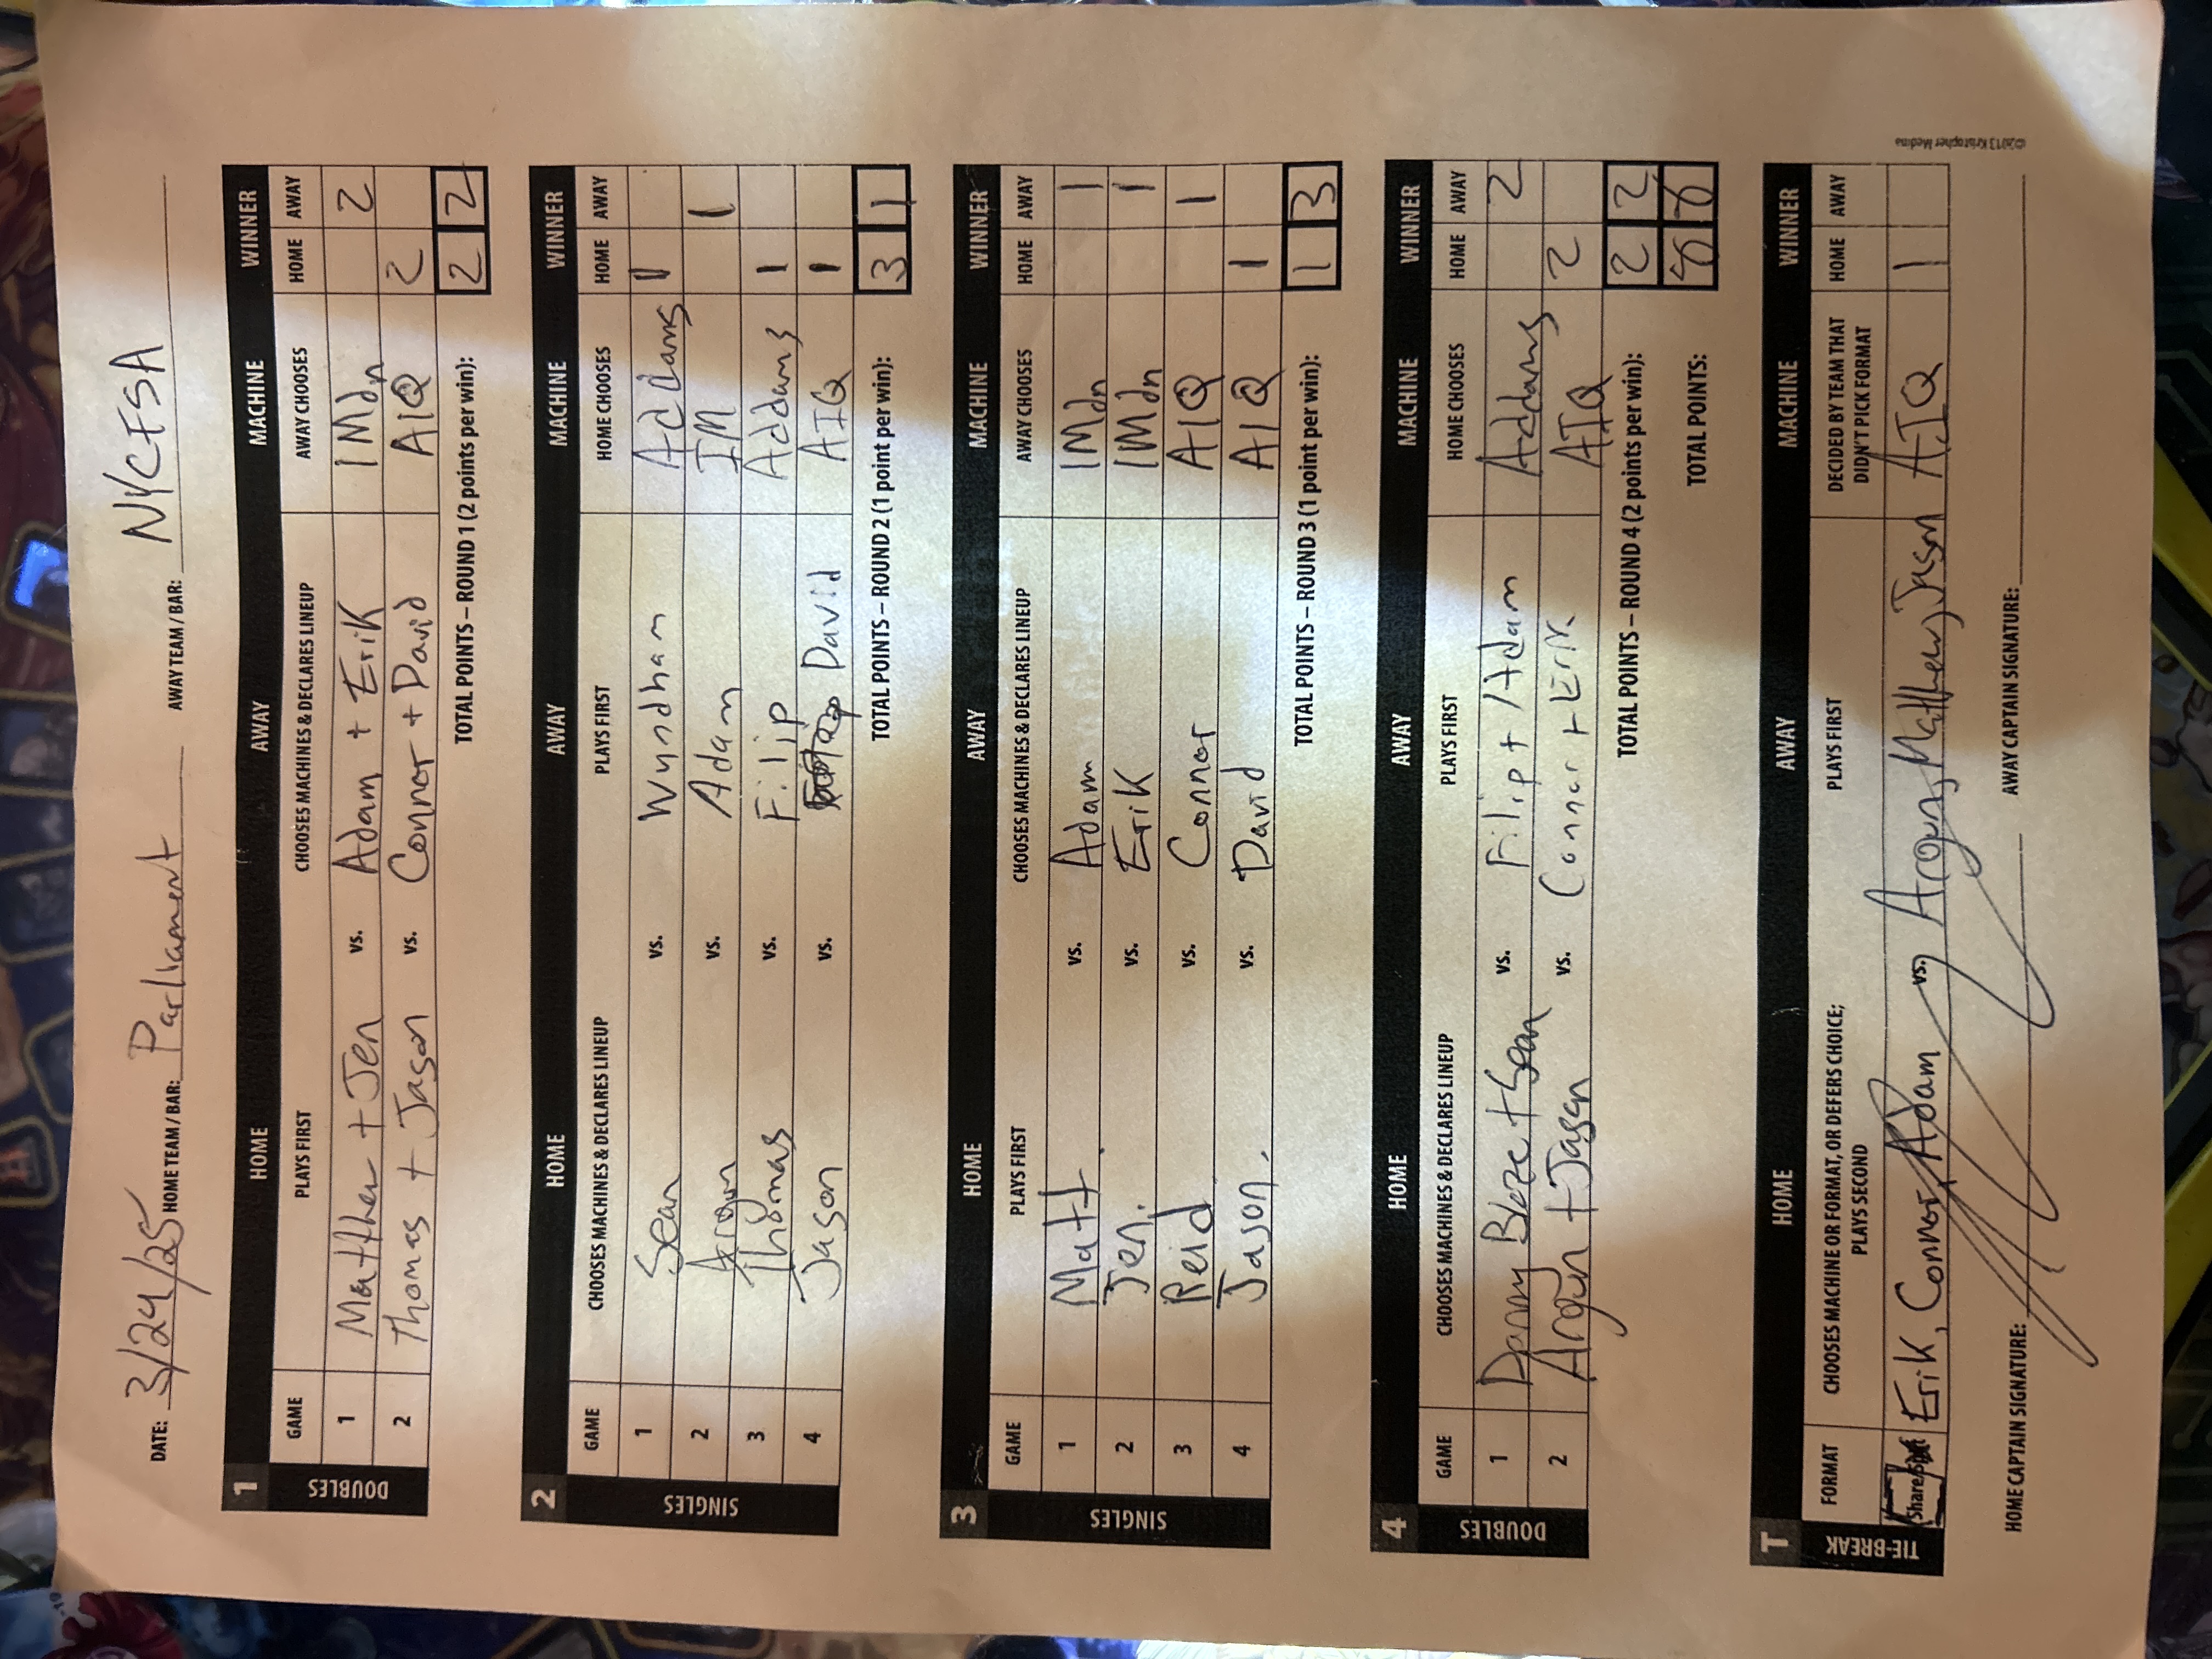 DATE: 3/24/25 HOME TEAM / BAR: Parliament AWAY TEAM / BAR: NYCFSA
1 HOME AWAY MACHINE WINNER
GAME PLAYS FIRST CHOOSES MACHINES & DECLARES LINEUP AWAY CHOOSES HOME AWAY
DOUBLES
1 Matthew + Jen vs. Adam + Erik IMdn 2
2 Thomas + Jason vs. Connor + David AIQ 2
TOTAL POINTS – ROUND 1 (2 points per win): 2 2
2 HOME AWAY MACHINE WINNER
GAME CHOOSES MACHINES & DECLARES LINEUP PLAYS FIRST HOME CHOOSES HOME AWAY
SINGLES
1 Sean vs. Wyndham Addams 1
2 vs. Adam IM 1
3 Thomas vs. Filip Addams 1
4 Jason vs. David AIQ 1
TOTAL POINTS – ROUND 2 (1 point per win): 3 1
3 HOME AWAY MACHINE WINNER
GAME PLAYS FIRST CHOOSES MACHINES & DECLARES LINEUP AWAY CHOOSES HOME AWAY
SINGLES
1 Matt vs. Adam IMdn 1
2 Jen. vs. Erik IMdn 1
3 Reid vs. Connor AIQ 1
4 Jason. vs. David AIQ 1
TOTAL POINTS – ROUND 3 (1 point per win): 1 3
4 HOME AWAY MACHINE WINNER
GAME CHOOSES MACHINES & DECLARES LINEUP PLAYS FIRST HOME CHOOSES HOME AWAY
DOUBLES
1 Danny Blaze + Sean vs. Filip + Adam Addams 2
2 + Jason vs. Connor + Erik AIQ 2
TOTAL POINTS – ROUND 4 (2 points per win): 2 2
TOTAL POINTS: 8 8
T HOME AWAY MACHINE WINNER
FORMAT CHOOSES MACHINE OR FORMAT, OR DEFERS CHOICE; PLAYS SECOND PLAYS FIRST DECIDED BY TEAM THAT DIDN'T PICK FORMAT HOME AWAY
TIE-BREAK
Erik, Connor, Adam vs. Matthew, Jason AIQ 1
HOME CAPTAIN SIGNATURE: AWAY CAPTAIN SIGNATURE:
©2013 Kristopher Medina